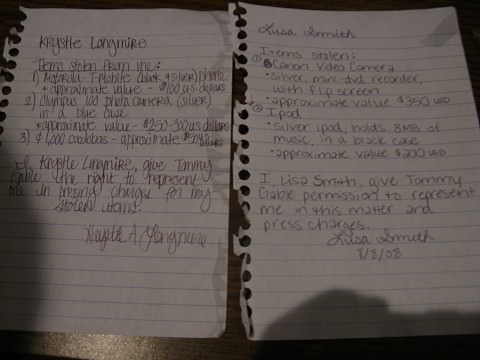 Krystle Langmire
Items stolen from me:
1) Motorola T-Mobile (black & silver) phone
• approximate value - $100 u.s. dollars
2) Olympus 100 photo camera (silver)
in a blue case
•approximate value - $250-300 u.s. dollars
3) 1,000 - approximate
I, Krystle Langmire, give Tommy
Gable the right to represent
me in pressing charges for my
stolen items.
Krystle A Langmire
Lisa Smith
Items stolen:
① Canon Video Camera
• silver, mini-dvd recorder,
with flip screen
•approximate value $350 USD
② Ipod
• silver ipod, holds 8MB of
music, in a black case
•approximate value $200 USD
I, Lisa Smith, give Tommy
Gable permission to represent
me in this matter and
press charges.
Lisa Smith
8/8/08